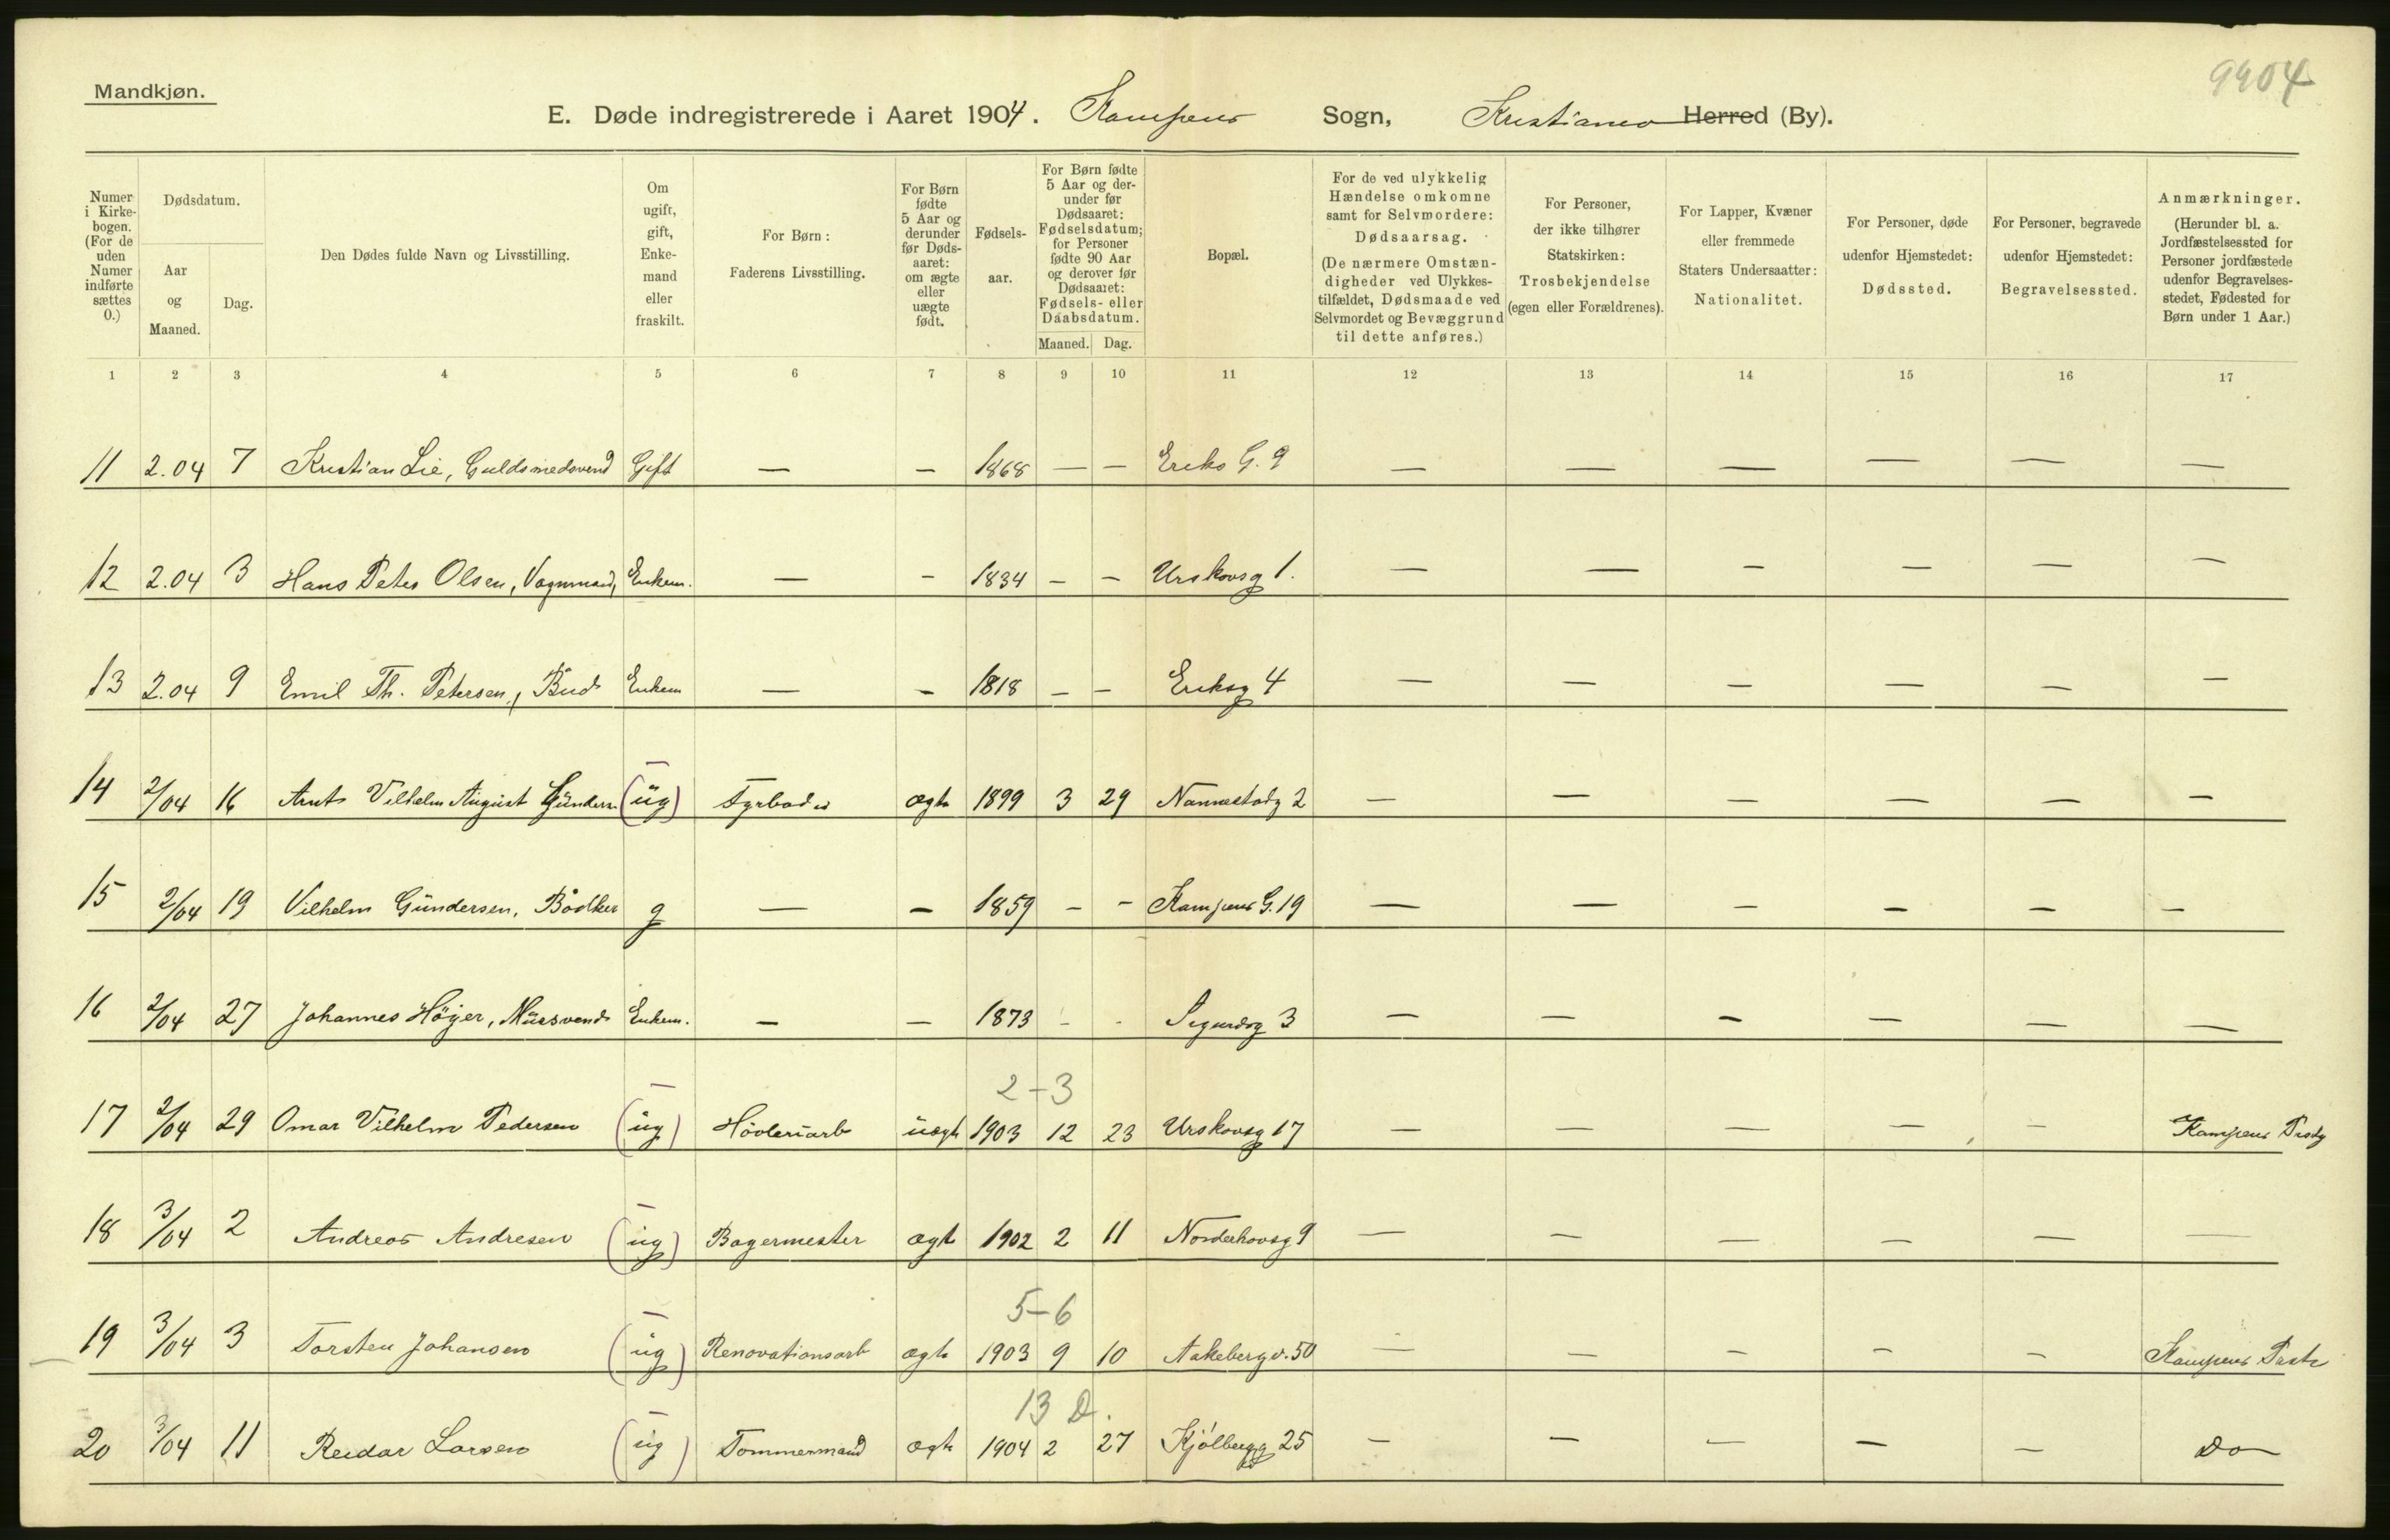 9904
Mandkjøn.
E. Døde indregistrerede i Aaret 1904. Kampens Sogn, Kristiania Herred (By).
Numer i Kirkebogen. (For de uden Numer indførte sættes 0.)
Dødsdatum.
Aar og Maaned.
Dag.
Den Dødes fulde Navn og Livsstilling.
Om ugift, gift, Enkemand eller fraskilt.
For Børn: Faderens Livsstilling.
For Børn fødte 5 Aar og derunder før Dødsaaret: om ægte eller uægte født.
Fødselsaar.
For Børn fødte 5 Aar og derunder før Dødsaaret: Fødselsdatum; for Personer fødte 90 Aar og derover før Dødsaaret: Fødsels- eller Daabsdatum.
Maaned. Dag.
Bopæl.
For de ved ulykkelig Hændelse omkomne samt for Selvmordere: Dødsaarsag. (De nærmere Omstændigheder ved Ulykkestilfældet, Dødsmaade ved Selvmordet og Bevæggrund til dette anføres.)
For Personer, der ikke tilhører Statskirken: Trosbekjendelse (egen eller Forældrenes).
For Lapper, Kvæner eller fremmede Staters Undersaatter: Nationalitet.
For Personer, døde udenfor Hjemstedet: Dødssted.
For Personer, begravede udenfor Hjemstedet: Begravelsessted.
Anmærkninger. (Herunder bl. a. Jordfæstelsessted for Personer jordfæstede udenfor Begravelsesstedet, Fødested for Børn under 1 Aar.)
1 2 3 4 5 6 7 8 9 10 11 12 13 14 15 16 17
11 2.04 7 Kristian Lie, Guldsmedsvend Gift — — 1868 — — Eriks G. 9 — — — — — —
12 2.04 3 Hans Peter Olsen, Vognmand, Enkem. — — 1834 — — Urskovsg 1. — — — — — —
13 2.04 9 Emil Th. Petersen, Bud Enkem — — 1818 — — Eriksg 4 — — — — — —
14 2/04 16 Arnt Vilhelm August Gundersen (ug) Fyrbøder ægte 1899 3 29 Nannestadg 2 — — — — — —
15 2/04 19 Vilhelm Gundersen, Bødker g — — 1859 — — Kampens G. 19 — — — — — —
16 2/04 27 Johannes Höyer, Mursvend Enkem. — — 1873 — — Sigurdsg 3 — — — — — —
2-3
17 2/04 29 Omar Vilhelm Pedersen (ug) Høvleriarb uægte 1903 12 23 Urskovsg 17 — — — — — Kampens Prstg
18 3/04 2 Andreas Andresen (ug) Bagermester ægte 1902 2 11 Norderhovsg 9 — — — — — —
5-6
19 3/04 3 Torsten Johansen (ug) Renovationsarb ægte 1903 9 10 Aakebergv. 50 — — — — — Kampens Prstg
13 D.
20 3/04 11 Reidar Larsen (ug) Tømmermand ægte 1904 2 27 Kjølbergg 25 — — — — — Do